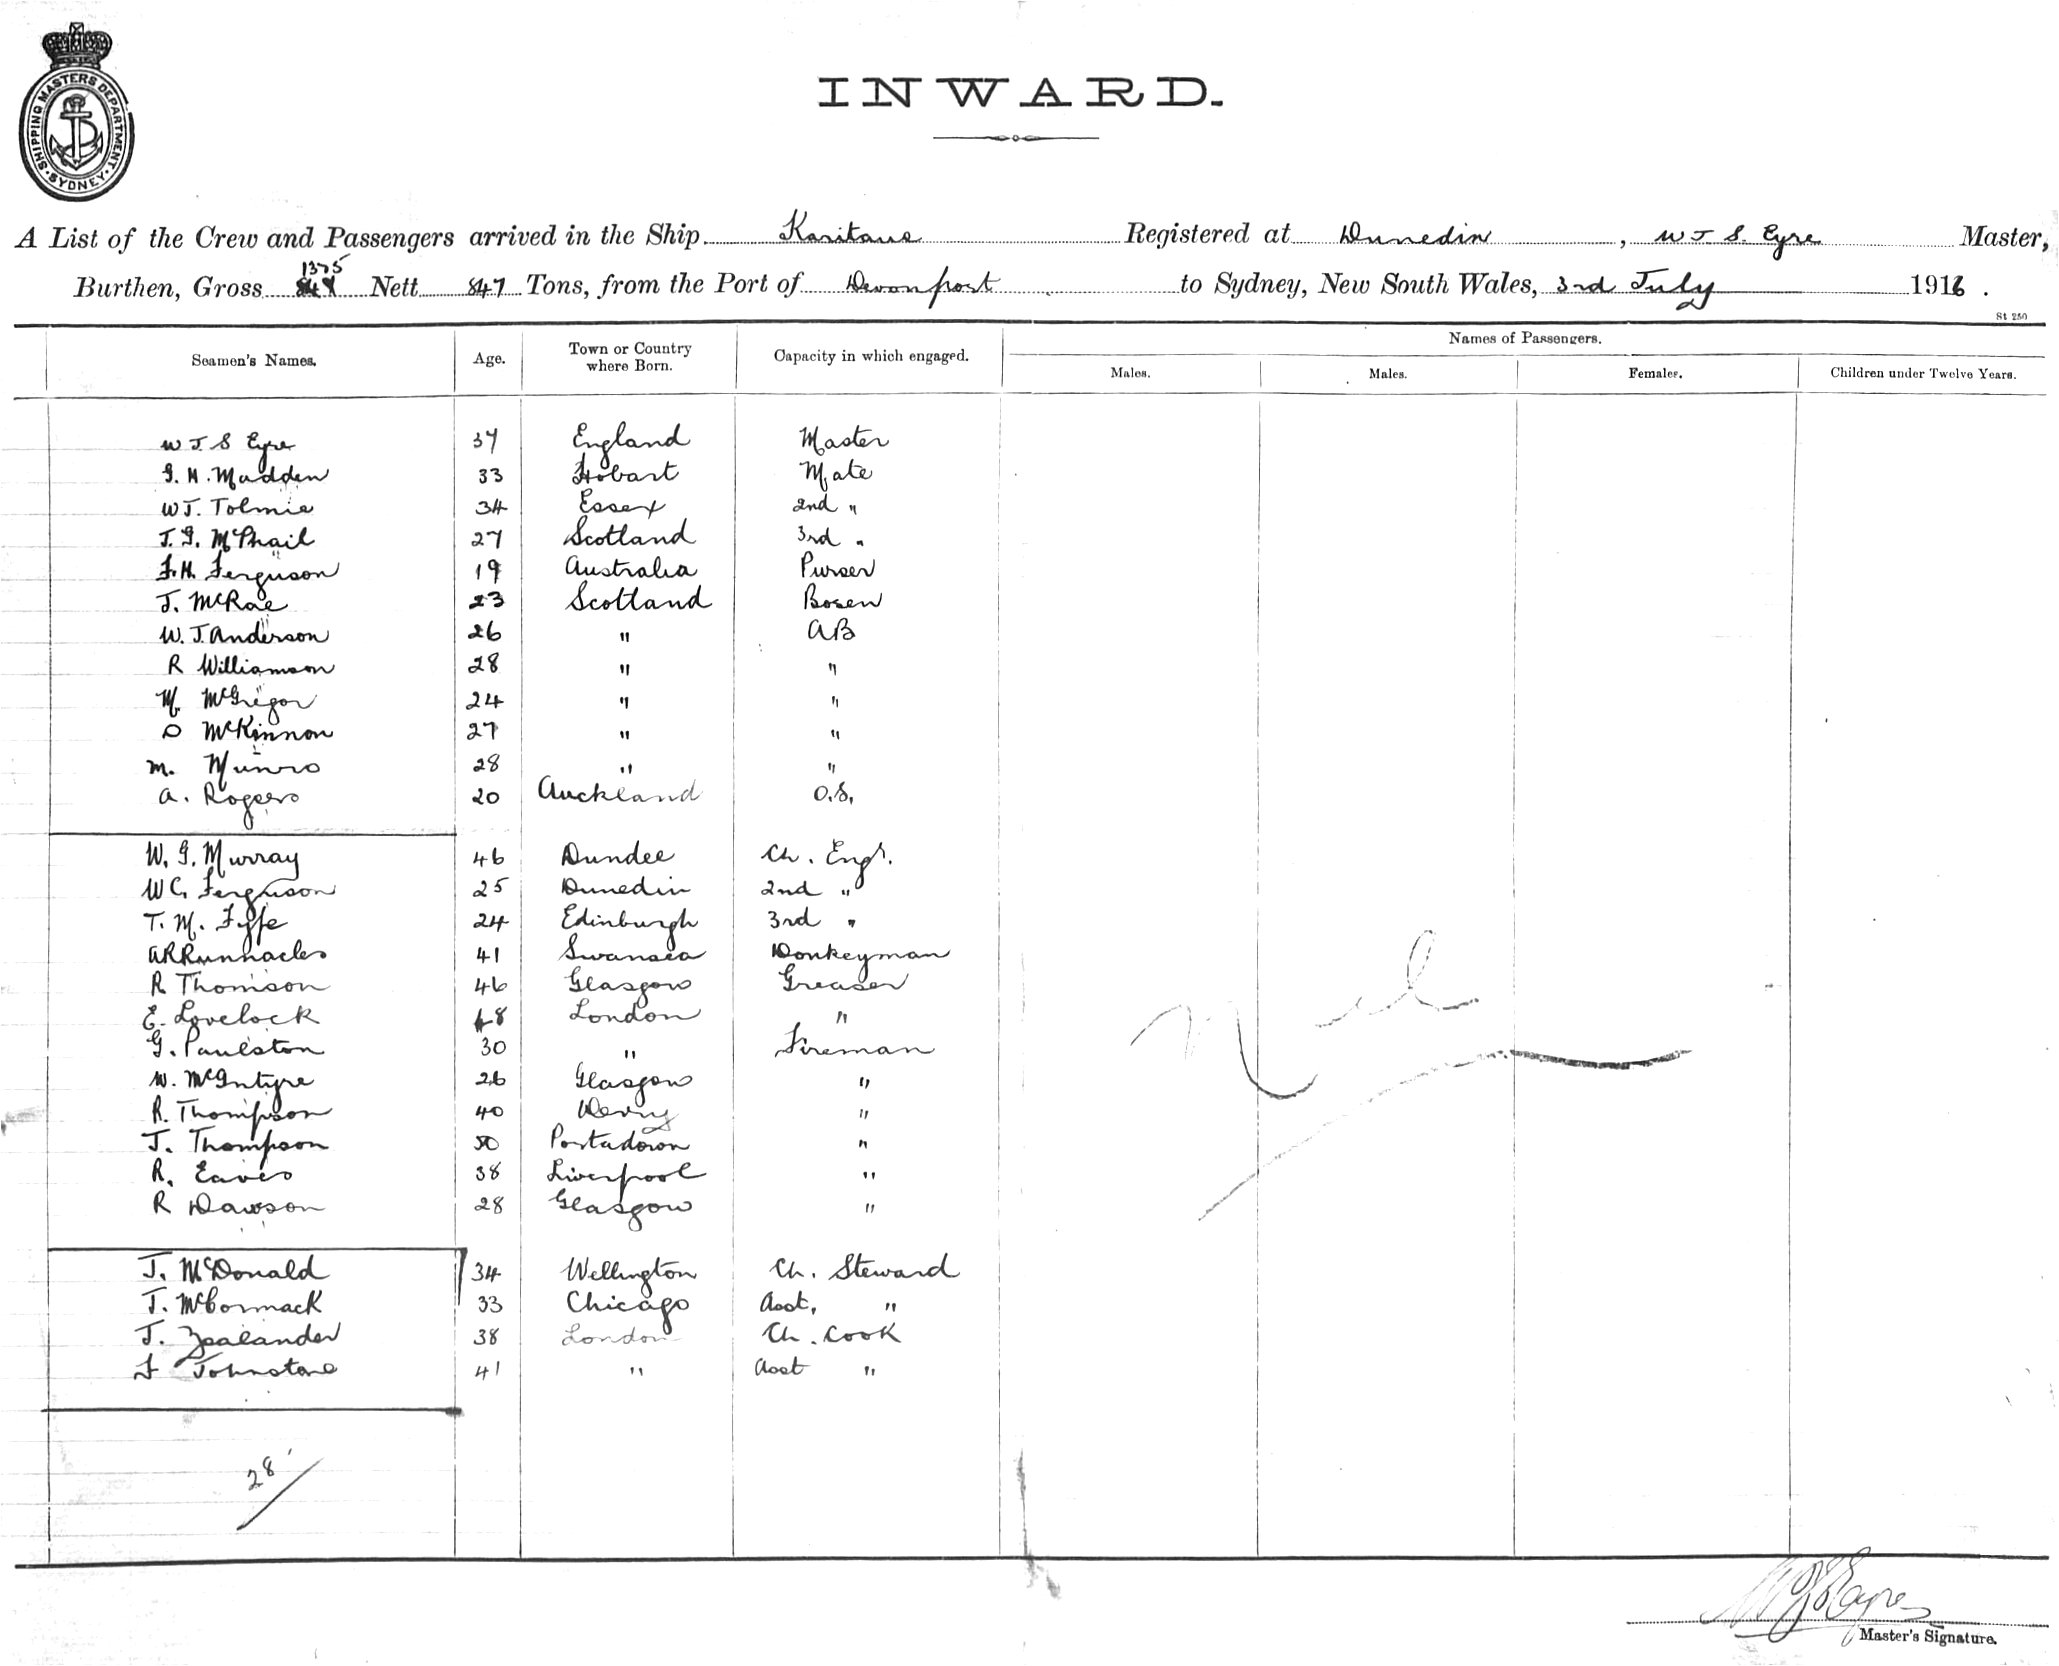 SHIPPING MASTERS DEPARTMENT · SYDNEY ·
INWARD.
A List of the Crew and Passengers arrived in the Ship Karitane Registered at Dunedin, W J S. Eyre Master,
1375
Burthen, Gross 847 Nett 847 Tons, from the Port of Devonport to Sydney, New South Wales, 3rd July 1916.
St 250
Seamen's Names. Age. Town or Country where Born. Capacity in which engaged. Names of Passengers.
Males. Males. Females. Children under Twelve Years.
W J S Eyre 37 England Master
G. H. Madden 33 Hobart Mate
W J. Tolmie 34 Essex 2nd "
J. G. McPhail 27 Scotland 3rd "
F. H. Ferguson 19 Australia Purser
J. McRae 23 Scotland Bosen
W. J. Anderson 26 " AB
R Williamson 28 " "
M. McGregor 24 " "
D McKinnon 27 " "
M. Munro 28 " "
A. Rogers 20 Auckland O.S.
W. G. Murray 46 Dundee Ch. Engr.
W C. Ferguson 25 Dunedin 2nd "
T. M. Fyfe 24 Edinburgh 3rd "
A R Runnacles 41 Swansea Donkeyman
R Thomson 46 Glasgow Greaser
E. Lovelock 48 London "
G. Paulston 30 " Fireman
W. McIntyre 26 Glasgow "
R. Thompson 40 Derry "
J. Thompson 50 Portadown "
R. Eaves 38 Liverpool "
R Dawson 28 Glasgow "
J. McDonald 34 Wellington Ch. Steward
J. McCormack 33 Chicago Asst. "
J. Zealander 38 London Ch. Cook
F Johnstone 41 " Asst "
Nil
28
W J S Eyre
Master's Signature.